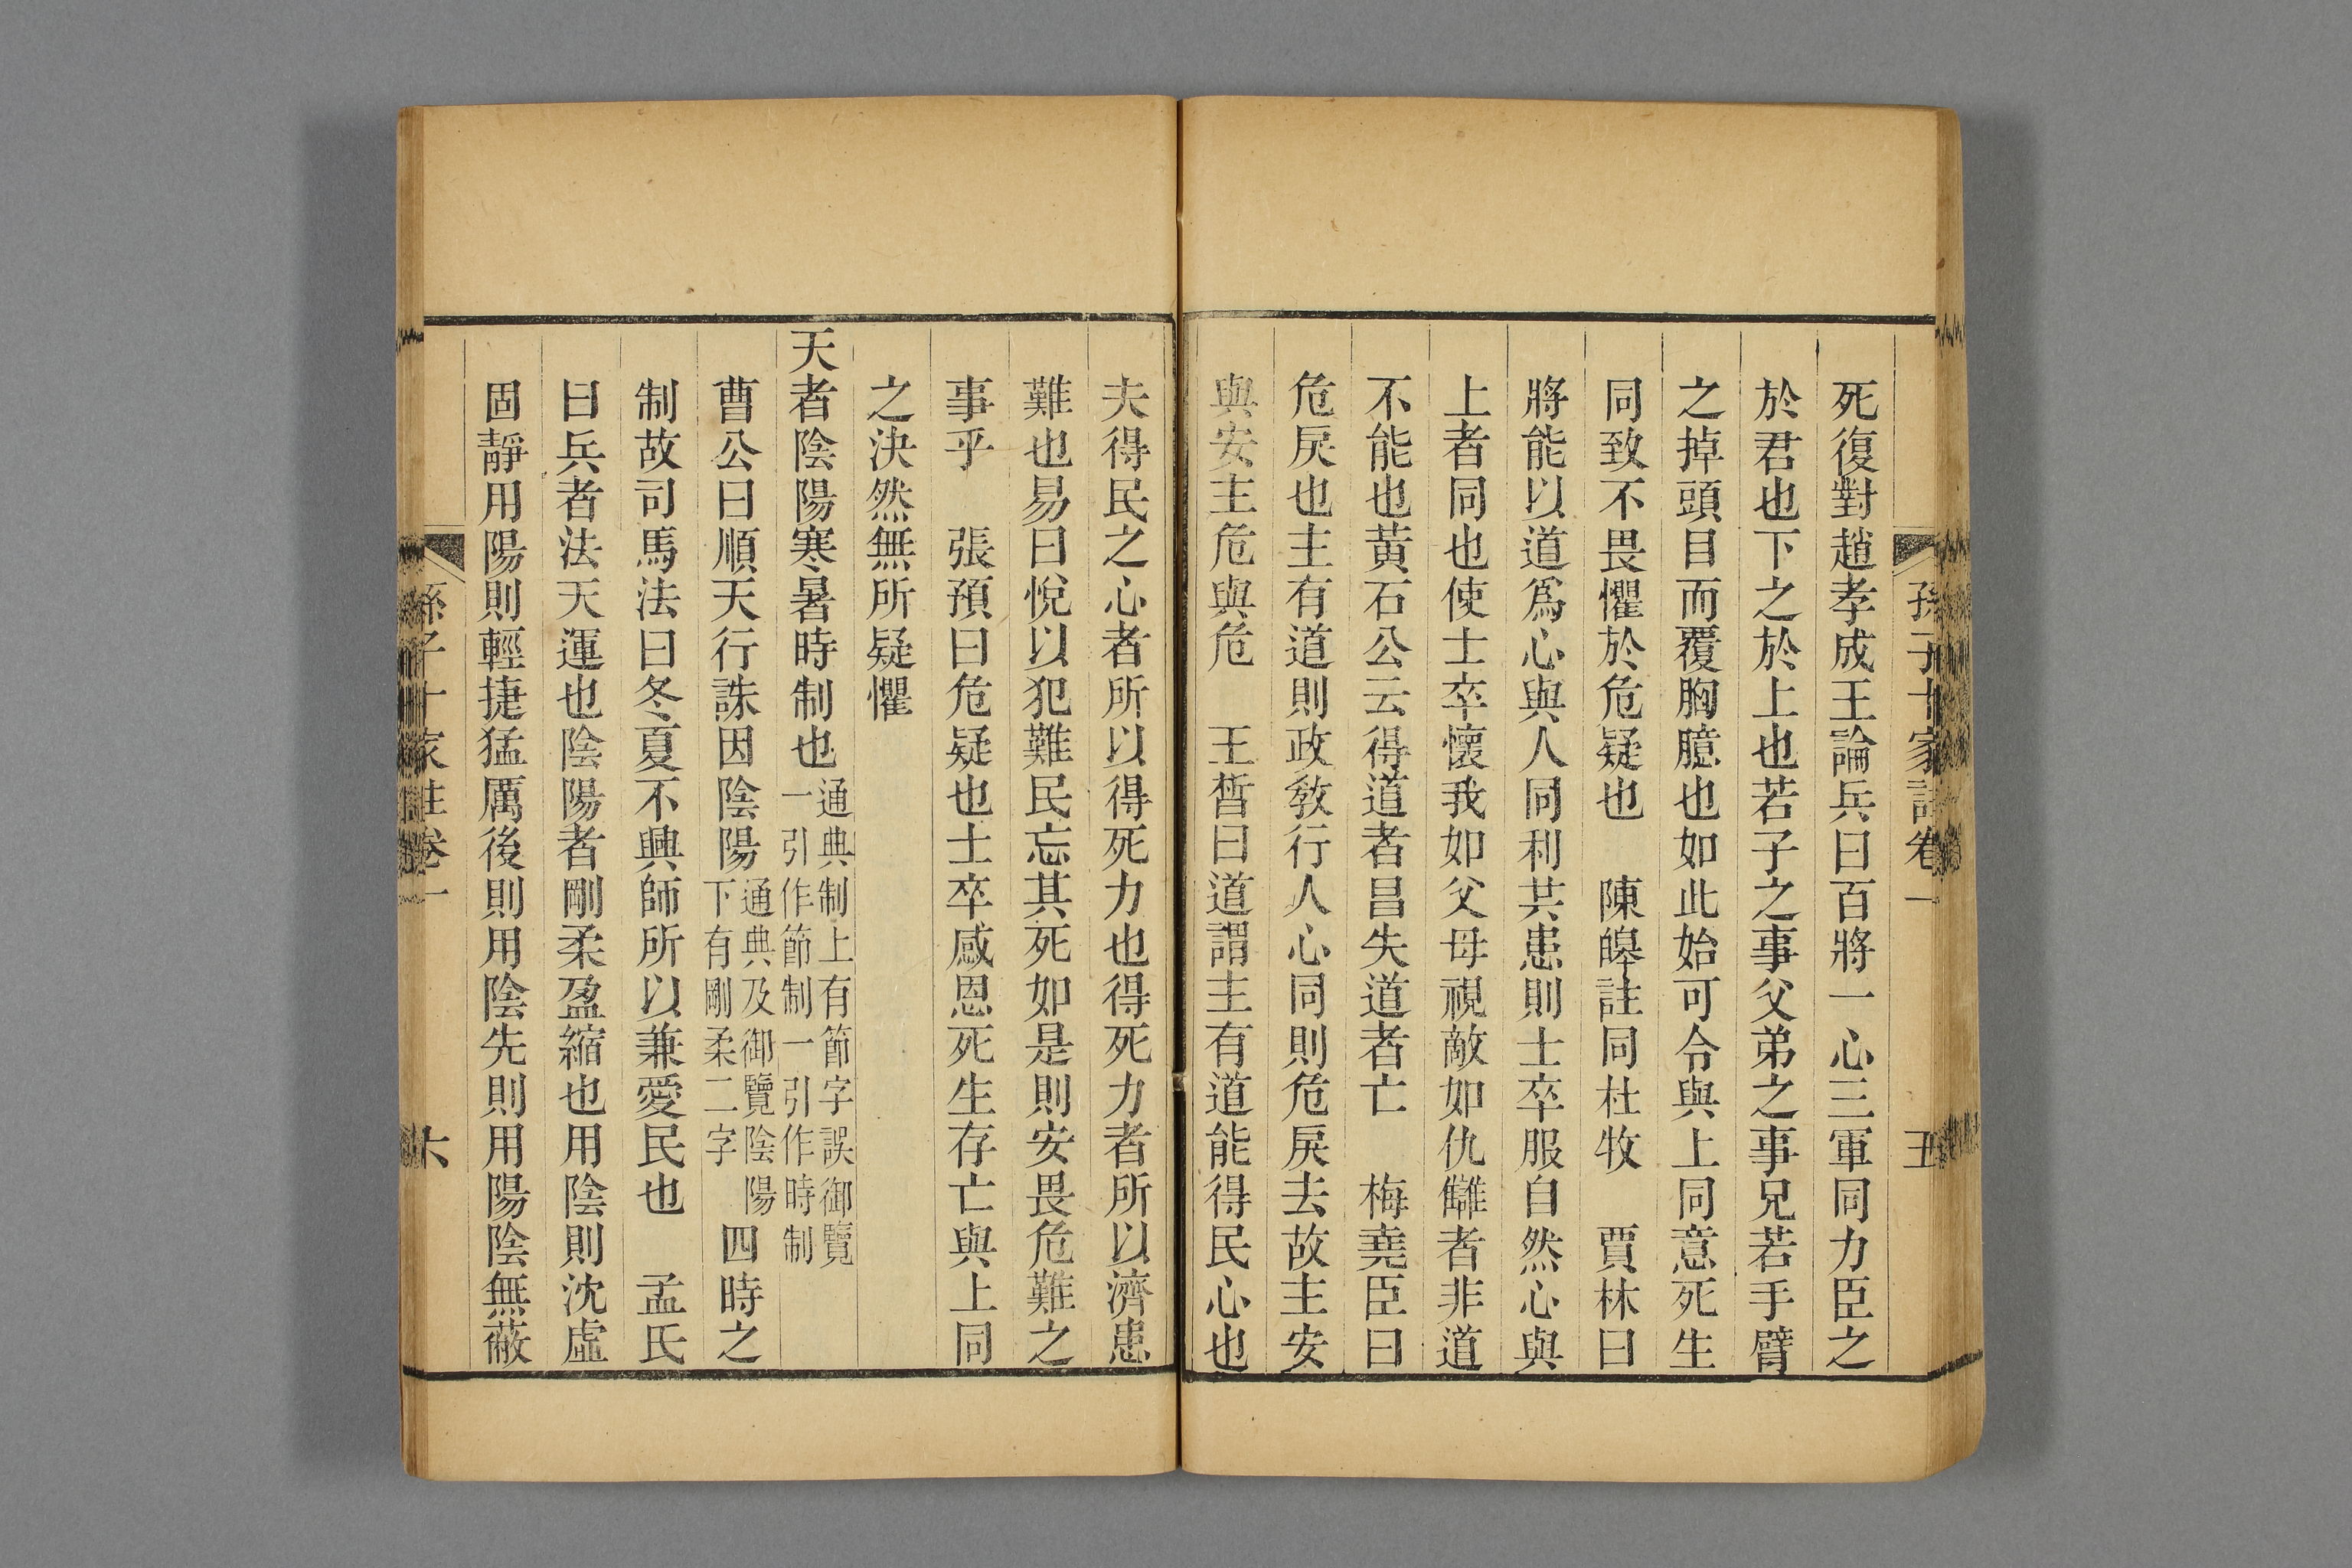 孫子十家註卷一 五
死復對趙孝成王論兵曰百將一心三軍同力臣之
於君也下之於上也若子之事父弟之事兄若手臂
之掉頭目而覆胸臆也如此始可令與上同意死生
同致不畏懼於危疑也　陳皥註同杜牧　賈林曰
將能以道爲心與人同利共患則士卒服自然心與
上者同也使士卒懷我如父母視敵如仇讎者非道
不能也黃石公云得道者昌失道者亡　梅堯臣曰
危戾也主有道則政敎行人心同則危戾去故主安
與安主危與危　王晳曰道謂主有道能得民心也
夫得民之心者所以得死力也得死力者所以濟患
難也易曰悅以犯難民忘其死如是則安畏危難之
事乎　張預曰危疑也士卒感恩死生存亡與上同
之決然無所疑懼
天者陰陽寒暑時制也通典制上有節字誤御覽一引作節制一引作時制
曹公曰順天行誅因陰陽通典及御覽陰陽下有剛柔二字四時之
制故司馬法曰冬夏不興師所以兼愛民也　孟氏
曰兵者法天運也陰陽者剛柔盈縮也用陰則沈虛
固靜用陽則輕捷猛厲後則用陰先則用陽陰無蔽
孫子十家註卷一 六